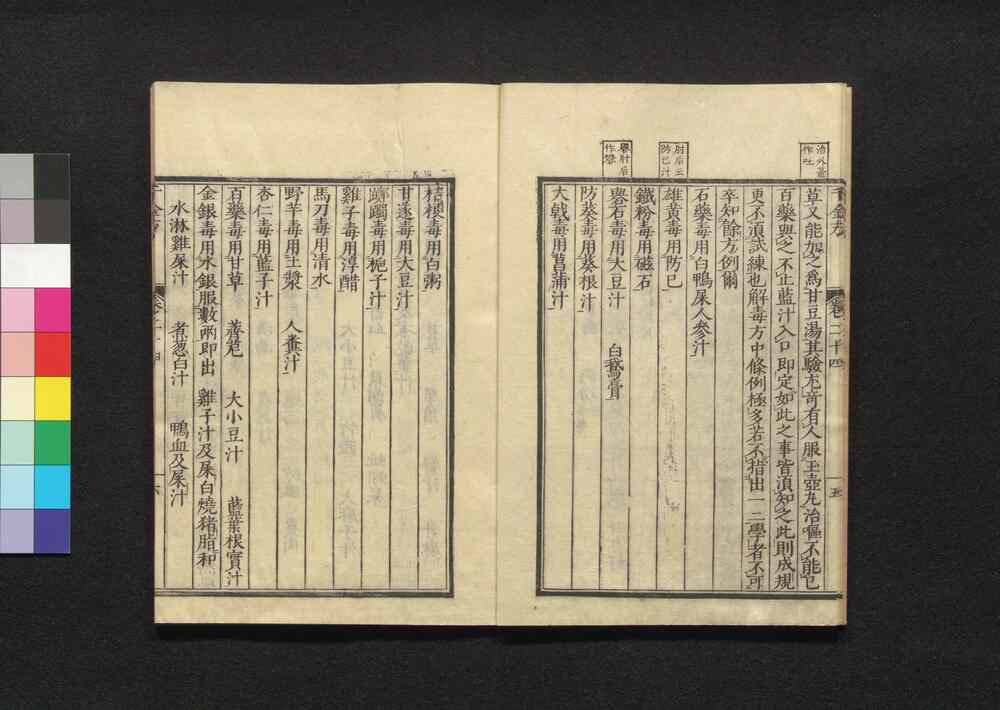 治外臺
作吐
肘后云
防已汁
礜肘后
作礬
草又能加之爲甘豆湯其驗尤奇有人服玉壺丸治嘔不能已
百藥與之不止藍汁入口即定如此之事皆湏知之此則成規
更不湏試練也解毒方中條例極多若不指出一二學者不可
卒知餘方例爾
石藥毒用白鴨屎人參汁
雄黃毒用防已
鐵粉毒用磁石
礜石毒用大豆汁 白鵝膏
防葵毒用葵根汁
大戟毒用菖蒲汁
千金方 卷二十四 五
桔梗毒用白粥
甘遂毒用大豆汁
躑躅毒用梔子汁
雞子毒用淳醋
馬刀毒用清水
野芋毒用土漿 人糞汁
杏仁毒用藍子汁
百藥毒用甘草 薺苨 大小豆汁 藍葉根實汁
金銀毒用水銀服數兩即出 雞子汁及屎白燒猪脂和
水淋雞屎汁 煮葱白汁 鴨血及屎汁